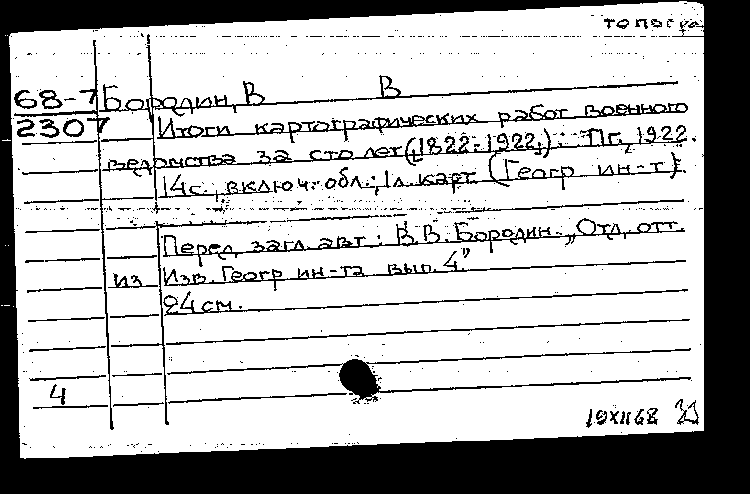 топогра
68-7 Бородин, В В
2307 Итоги картографических работ военного
ведомства за сто лет (1822-1922). Пг, 1922.
14с., включ. обл.; 1л. карт. (Геогр ин-т).
Перед загл. авт: В.В. Бородин. „Отд. отт.
из Изв. Геогр ин-та вып. 4"
24см.
4
19XII68